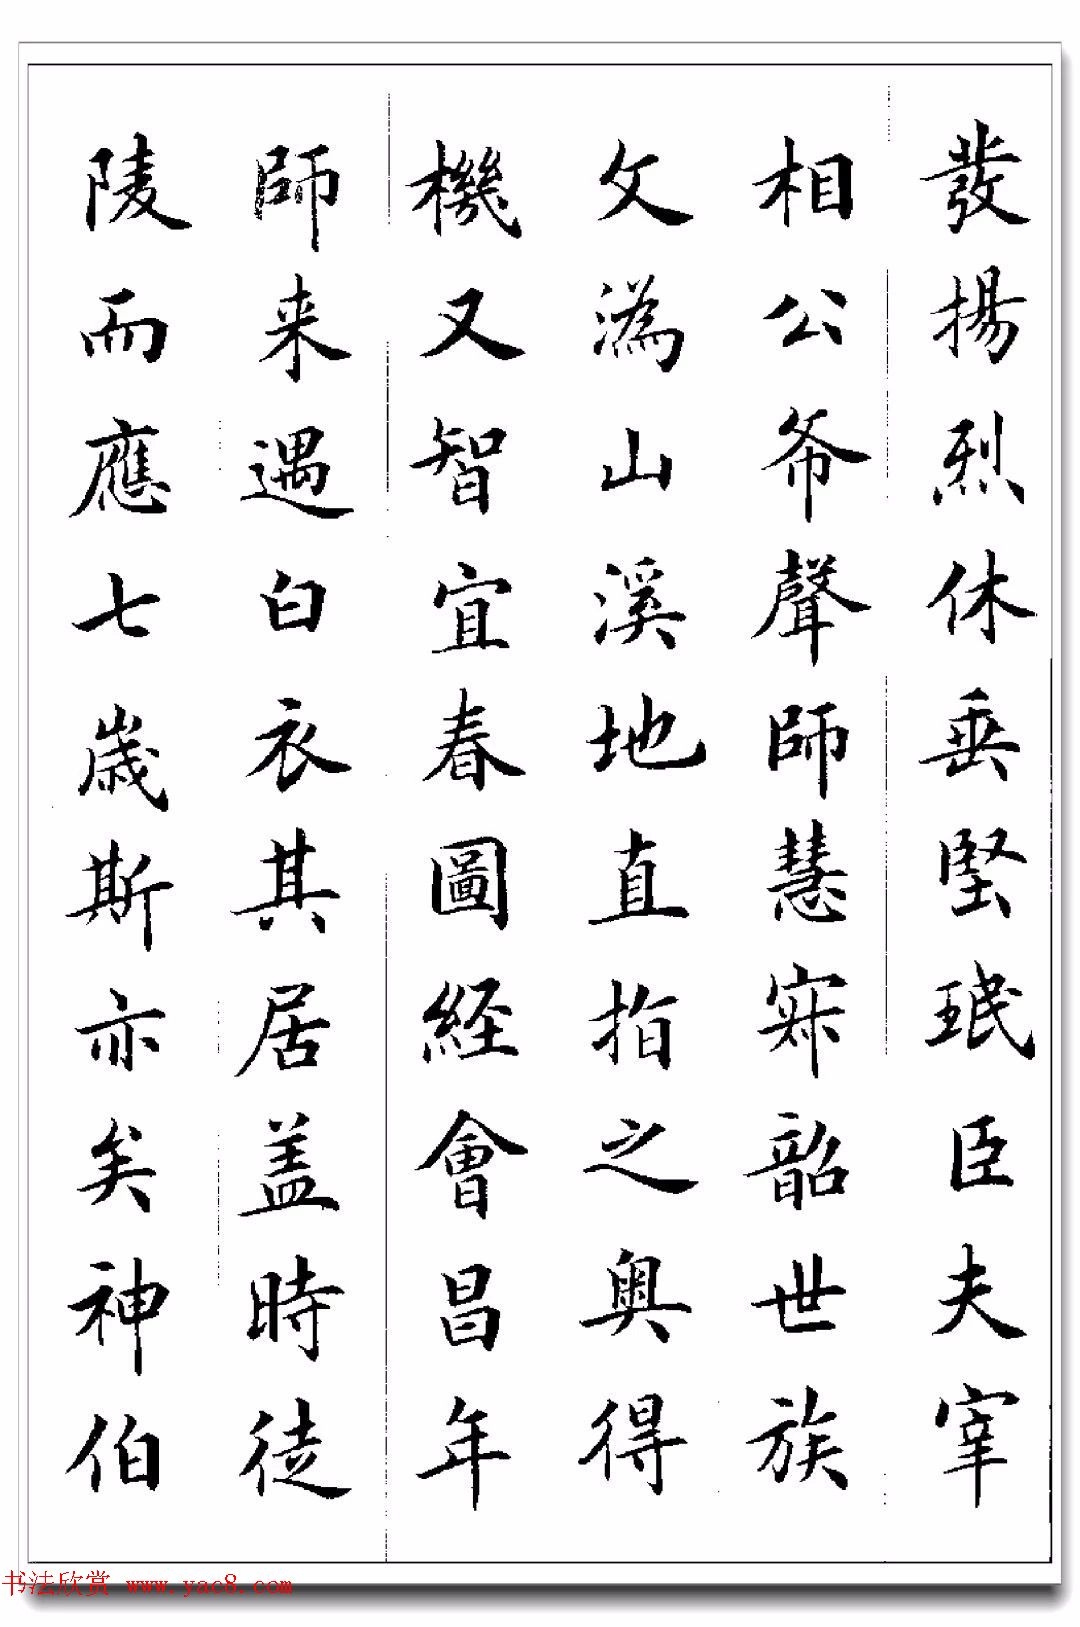 發揚烈休垂堅珉臣夫宰
相公爷聲師慧寂韶世族
文溈山溪地直指之奥得
機又智宜春圖経會昌年
師来遇白衣其居盖時徒
陵而應七歲斯亦矣神伯
书法欣赏 www.yac8.com